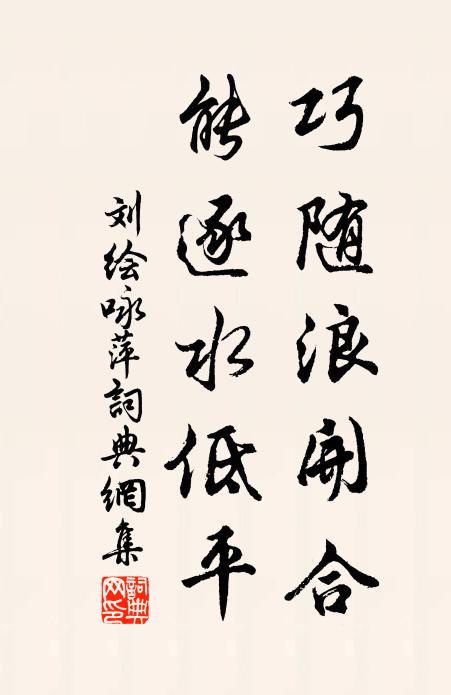 巧随浪開合
能逐水低平
刘绘咏萍詞典網集
詞典网印